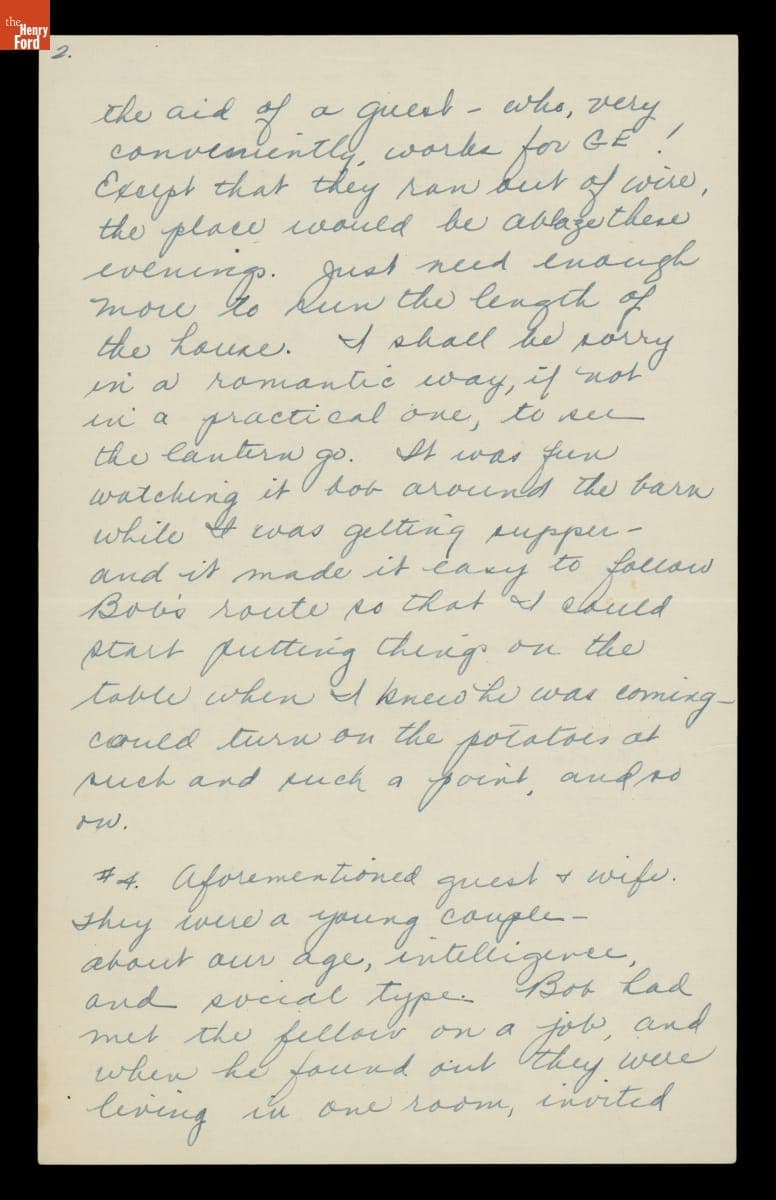 the
Henry
Ford
2.
the aid of a guest – who, very
conveniently, works for GE!
Except that they ran out of wire,
the place would be ablaze these
evenings. Just need enough
more to run the length of
the house. I shall be sorry
in a romantic way, if not
in a practical one, to see
the lantern go. It was fun
watching it bob around the barn
while I was getting supper –
and it made it easy to follow
Bob's route so that I could
start putting things on the
table when I knew he was coming –
could turn on the potatoes at
such and such a point, and so
on.
#4. Aforementioned guest & wife.
They were a young couple –
about our age, intelligence,
and social type. Bob had
met the fellow on a job, and
when he found out they were
living in one room, invited